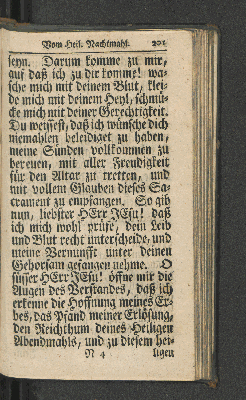 Vom Heil. Nachtmahl. 201
seyn. Darum komme zu mir,
auf daß ich zu dir komme! wa-
sche mich mit deinem Blut, klei-
de mich mit deinem Heyl, schmü-
cke mich mit deiner Gerechtigkeit.
Du weissest, daß ich wünsche dich
niemahlen beleidiget zu haben,
meine Sünden vollkommen zu
bereuen, mit aller Freudigkeit
für den Altar zu tretten, und
mit vollem Glauben dieses Sa-
crament zu empfangen. So gib
nun, liebster HErr JEsu! daß
ich mich wohl prüfe, dein Leib
und Blut recht unterscheide, und
meine Vernunfft unter deinen
Gehorsam gefangen nehme. O
süsser HErr JEsu! öffne mir die
Augen des Verstandes, daß ich
erkenne die Hoffnung meines Er-
bes, das Pfand meiner Erlösung,
den Reichthum deines Heiligen
Abendmahls, und zu diesem hei-
N 4 ligen